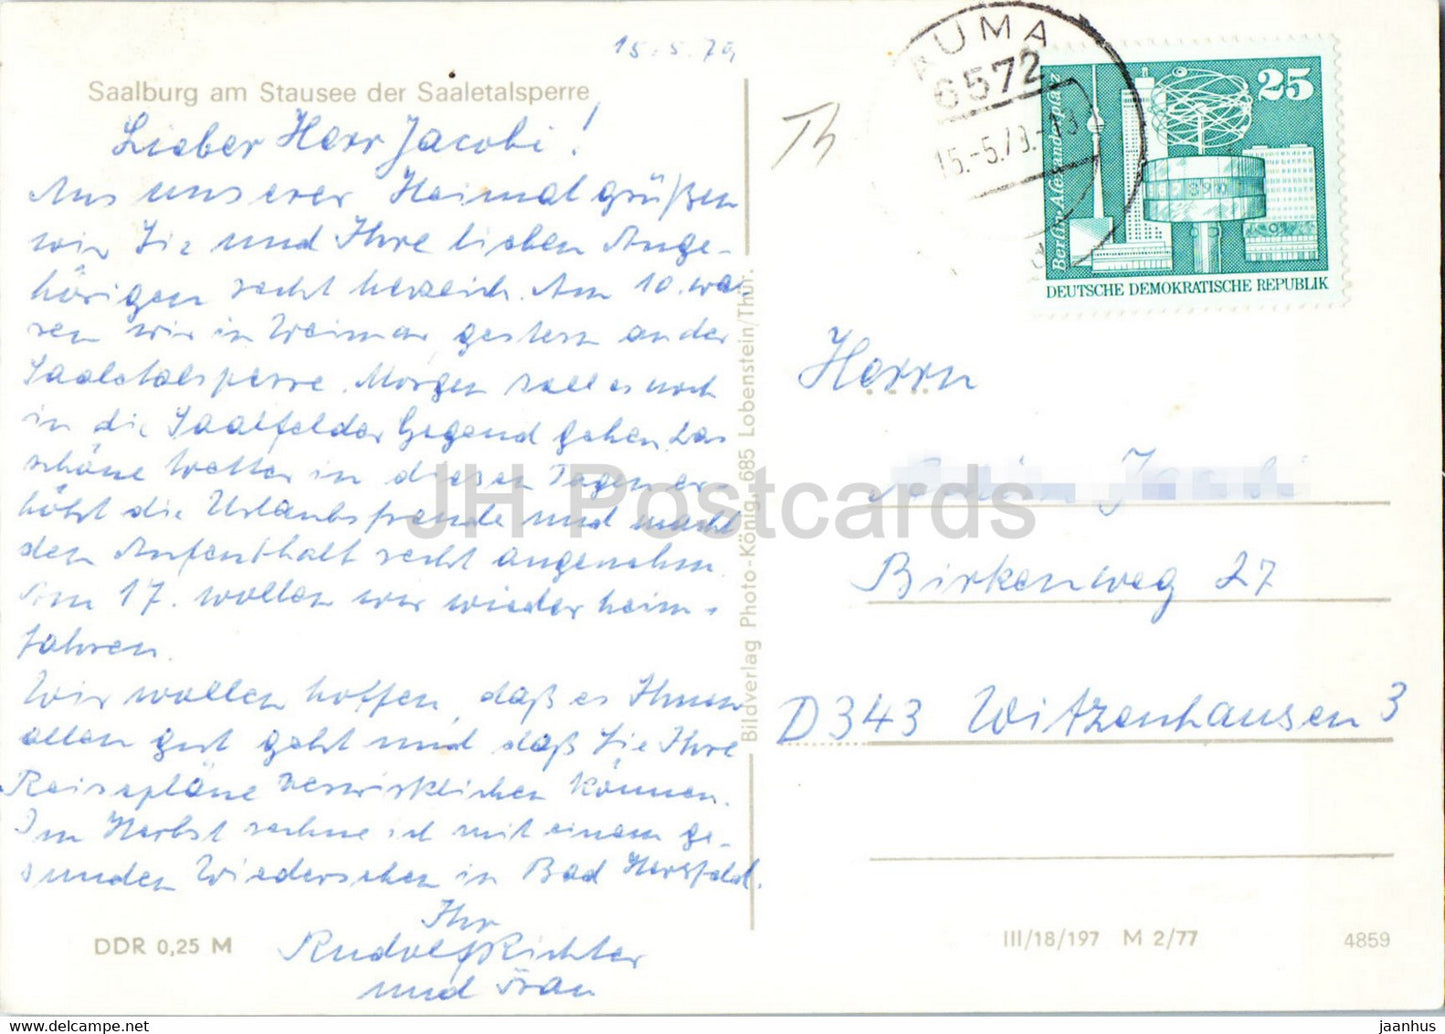 15.5.79
Saalburg am Stausee der Saaletalsperre
Lieber Herr Jacobi!
Aus unserer Heimat grüßen
wir Sie und Ihre lieben Ange-
hörigen recht herzlich. Am 10. wa-
ren wir in Weimar, gestern an der
Saaletalsperre. Morgen soll es noch
in die Saalfelder Gegend gehen. Das
schöne Wetter in diesen Tagen er-
höht die Urlaubsfreude und macht
den Aufenthalt recht angenehm.
Am 17. wollen wir wieder heim-
fahren.
Wir wollen hoffen, daß es Ihnen
allen gut geht und daß Sie Ihre
Reisepläne verwirklichen können.
Im Herbst rechne ich mit einem ge-
sunden Wiedersehen in Bad Hersfeld.
Ihr
Rudolf Richter
und Frau
DDR 0,25 M
Bildverlag Photo-König, 685 Lobenstein/Thür.
Th
AUMA
6572
15.-5.79.-18
25
Berlin-Alexanderplatz
DEUTSCHE DEMOKRATISCHE REPUBLIK
Herrn
Birkenweg 27
D343 Witzenhausen 3
III/18/197 M 2/77
4859
JH Postcards
jaanhus @ delcampe.net